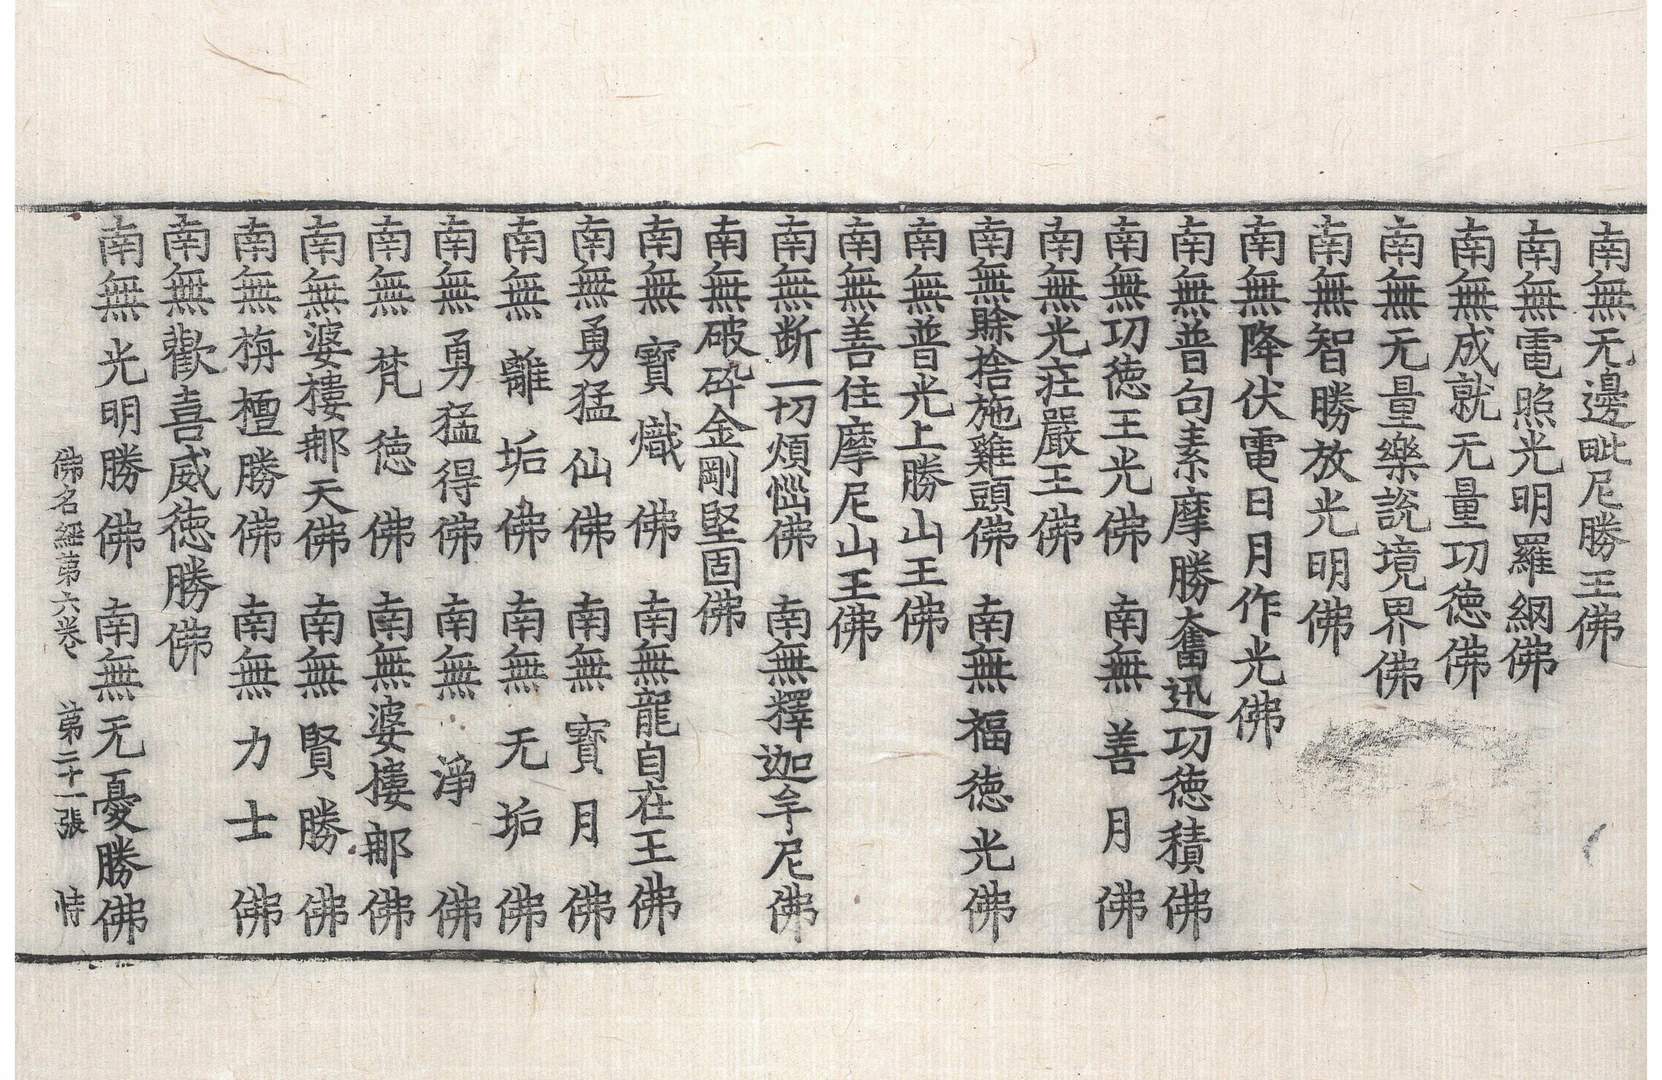 南無无邊毗尼勝王佛
南無電照光明羅網佛
南無成就无量功徳佛
南無无量樂説境界佛
南無智勝放光明佛
南無降伏電日月作光佛
南無普句素摩勝奮迅功徳積佛
南無功徳王光佛 南無善月佛
南無光疘嚴王佛
南無賒捨施難頭佛 南無福徳光佛
南無普光上勝山王佛
南無善住摩尼山王佛
南無断一切煩惱佛 南無釋迦牟尼佛
南無破碎金剛堅固佛
南無寳熾佛 南無龍自在王佛
南無勇猛仙佛 南無寳月佛
南無離垢佛 南無无垢佛
南無勇猛得佛 南無淨佛
南無梵徳佛 南無婆樓那佛
南無婆樓那天佛 南無賢勝佛
南無栴檀勝佛 南無力士佛
南無歡喜威徳勝佛
南無光明勝佛 南無无憂勝佛
佛名經第六卷 第二十一張 恃